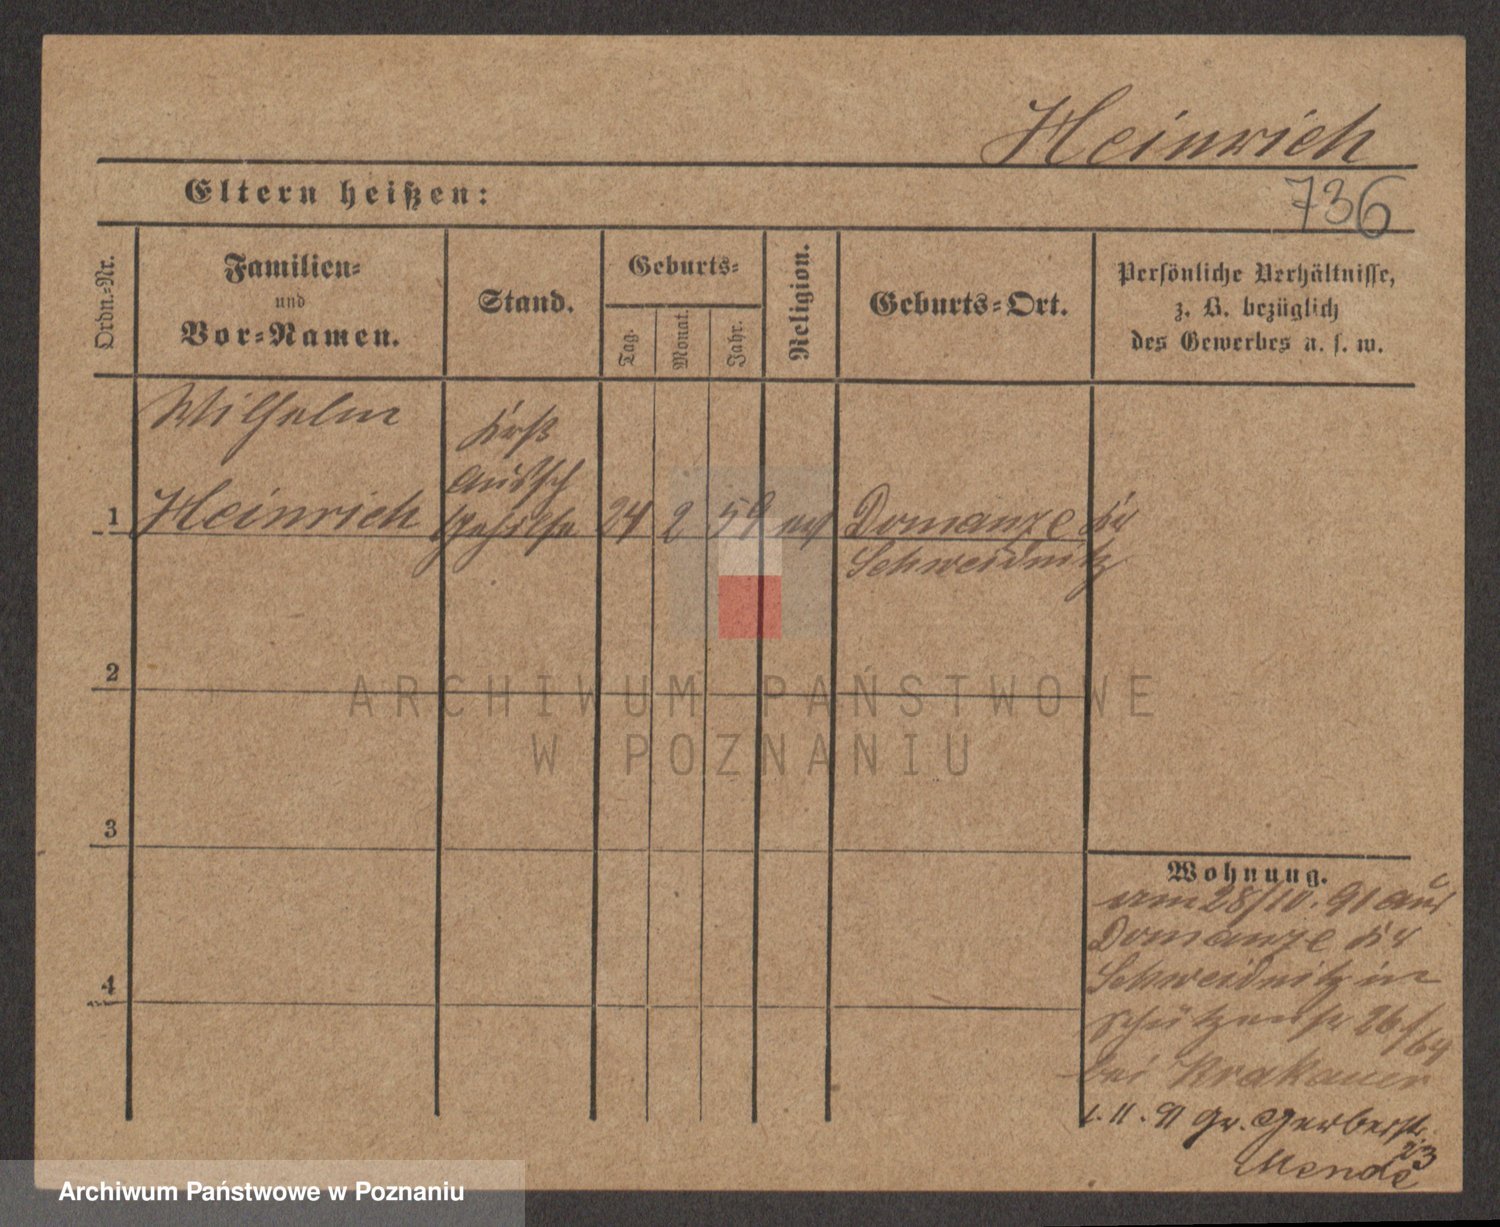 Heinrich
Eltern heißen:
736
Ordn.-Nr.
Familien-
und
Vor-Namen.
Stand.
Geburts-
Tag.
Monat.
Jahr.
Religion.
Geburts-Ort.
Persönliche Verhältnisse,
z. B. bezüglich
des Gewerbes u. s. w.
Wilhelm
1 Heinrich
gehilfe 24 2 59 Domanze Kr
Schweidnitz
2
ARCHIWUM PAŃSTWOWE
W POZNANIU
3
4
Wohnung.
28/10. 91 aus
Domanze Kr
Schweidnitz in
Schützenstr 26/64
bei Krakauer
1. 11. 91 Gr. Gerberstr.
23
Mende
Archiwum Państwowe w Poznaniu